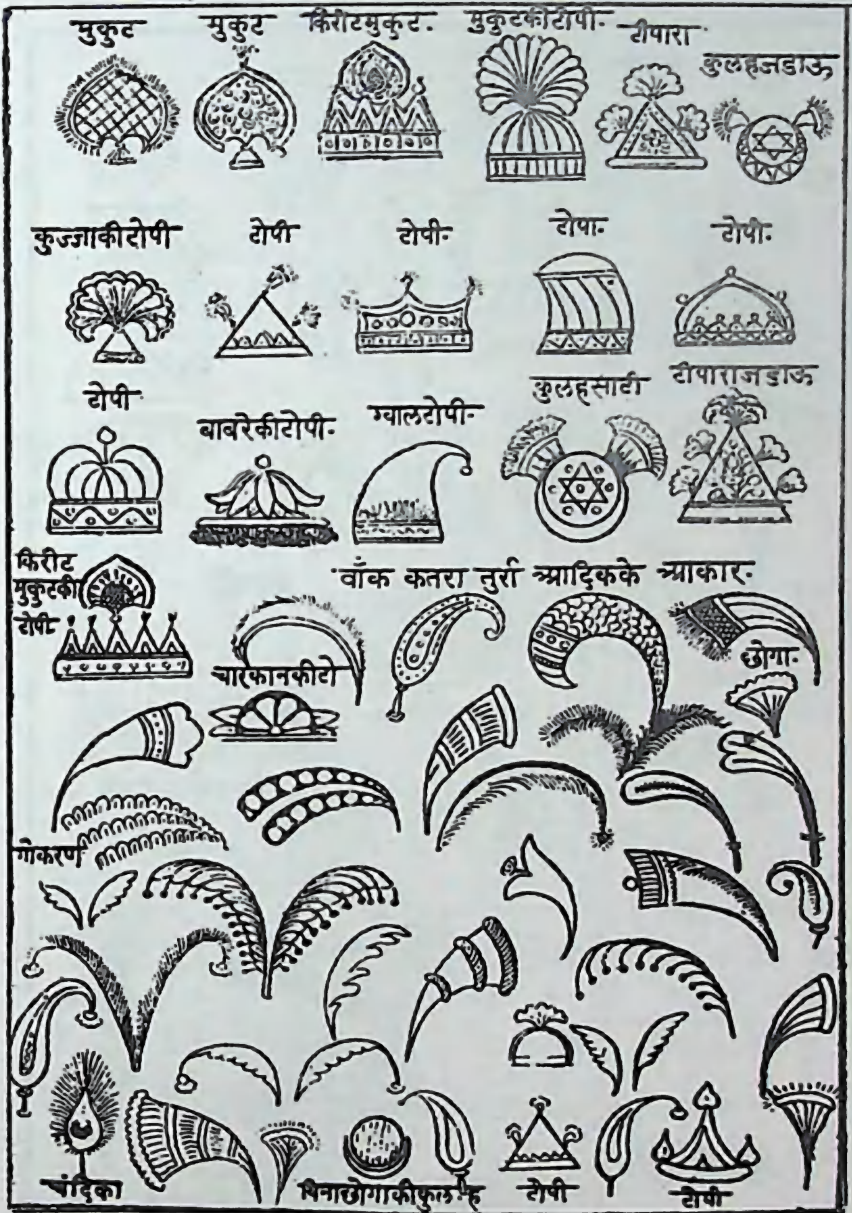 मुकुट मुकुट किरीटमुकुट. मुकुटकीटोपी. टीपारा
कुलहजडाऊ
कुज्जाकीटोपी टोपी टोपी. टोपा. टोपी.
टोपी बाबरेकीटोपी. ग्वालटोपी. कुलहसाटी टीपाराजडाऊ
किरीट
मुकुटकी
टोपी
वाँक कतरा तुर्रा आदिकके आकार.
छोगा.
चारफानकीटो
गोकरण
चंद्रिका बिनाछोगाकीकुलह टोपी टोपी